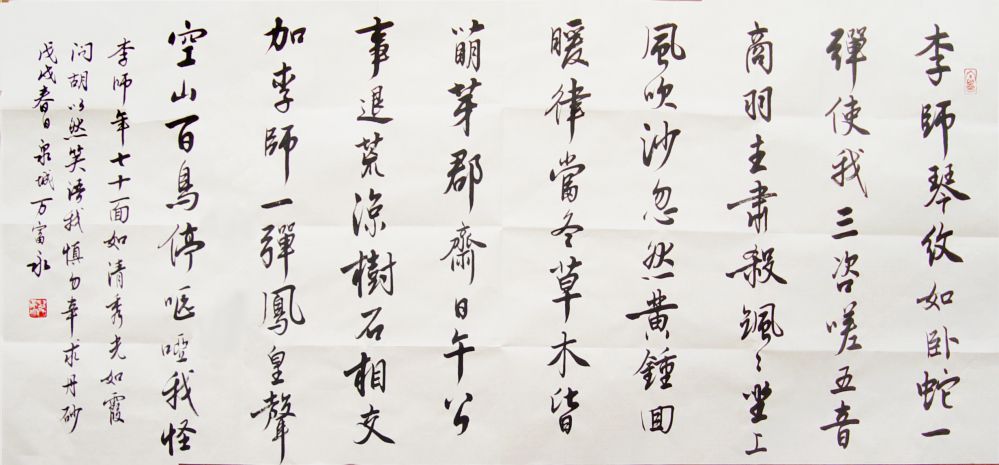 李師琴紋如卧蛇一
彈使我三咨嗟五音
商羽主肅殺颯〻坐上
風吹沙忽然黄鍾回
暖律當冬草木皆
萠芽郡齋日午公
事退荒凉樹石相交
加李師一彈鳳皇聲
空山百鳥停嘔啞我怪
李師年七十面如清秀光如霞
问胡以然笑语我慎勿辛求丹砂
戊戌春日泉城万富永